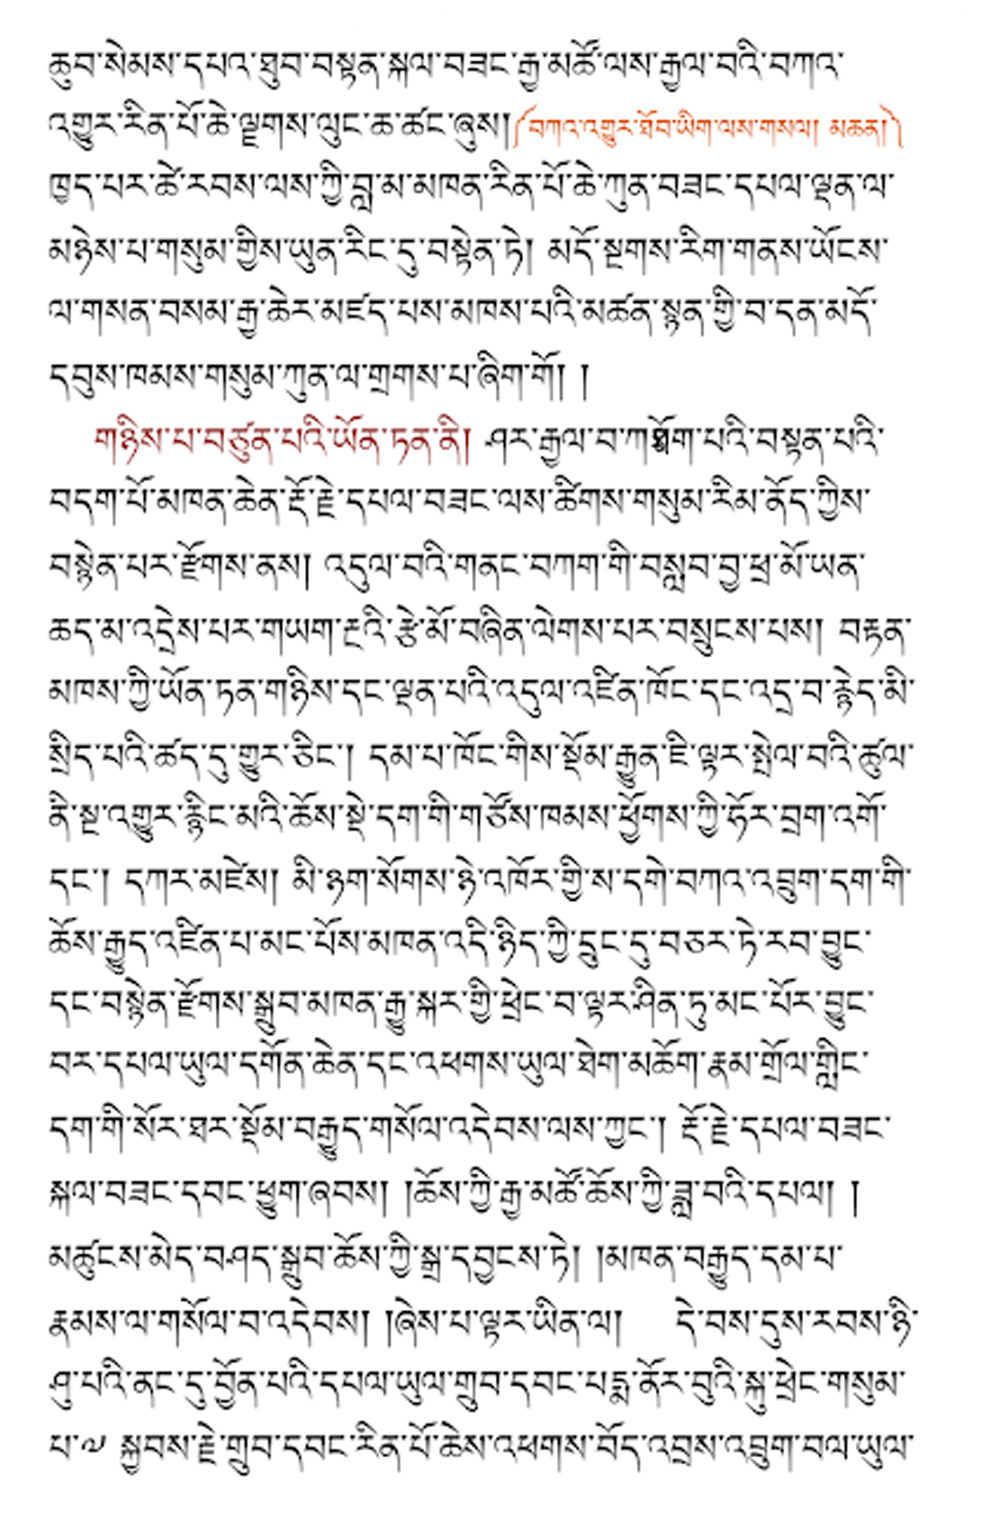 ཆུབ་སེམས་དཔའ་ཐུབ་བསྟན་སྐལ་བཟང་རྒྱ་མཚོ་ལས་རྒྱལ་བའི་བཀའ་
འགྱུར་རིན་པོ་ཆེ་ལྗགས་ལུང་ཆ་ཚང་ཞུས། (བཀའ་འགྱུར་ཐོབ་ཡིག་ལས་གསལ། མཆན།)
ཁྱད་པར་ཚེ་རབས་ལས་ཀྱི་བླ་མ་མཁན་རིན་པོ་ཆེ་ཀུན་བཟང་དཔལ་ལྡན་ལ་
མཉེས་པ་གསུམ་གྱིས་ཡུན་རིང་དུ་བསྟེན་ཏེ། མདོ་སྔགས་རིག་གནས་ཡོངས་
ལ་གསན་བསམ་རྒྱ་ཆེར་མཛད་པས་མཁས་པའི་མཚན་སྙན་གྱི་བ་དན་མདོ་
དབུས་ཁམས་གསུམ་ཀུན་ལ་གྲགས་པ་ཞིག་གོ། །
གཉིས་པ་བཙུན་པའི་ཡོན་ཏན་ནི། ཤར་རྒྱལ་བ་ཀཿཐོག་པའི་བསྟན་པའི་
བདག་པོ་མཁན་ཆེན་རྡོ་རྗེ་དཔལ་བཟང་ལས་ཚིགས་གསུམ་རིམ་ནོད་ཀྱིས་
བསྙེན་པར་རྫོགས་ནས། འདུལ་བའི་གནང་བཀག་གི་བསླབ་བྱ་ཕྲ་མོ་ཡན་
ཆད་མ་འདྲེས་པར་གཡག་རྔའི་རྩེ་མོ་བཞིན་ལེགས་པར་བསྲུངས་པས། བརྟན་
མཁས་ཀྱི་ཡོན་ཏན་གཉིས་དང་ལྡན་པའི་འདུལ་འཛིན་ཁོང་དང་འདྲ་བ་རྙེད་མི་
སྲིད་པའི་ཚད་དུ་གྱུར་ཅིང་། དམ་པ་ཁོང་གིས་སྡོམ་རྒྱུན་ཇི་ལྟར་སྤེལ་བའི་ཚུལ་
ནི་སྔ་འགྱུར་རྙིང་མའི་ཆོས་སྡེ་དག་གི་གཙོས་ཁམས་ཕྱོགས་ཀྱི་ཧོར་བྲག་འགོ་
དང་། དཀར་མཛེས། མི་ཉག་སོགས་ཉེ་འཁོར་གྱི་ས་དགེ་བཀའ་འབྲུག་དག་གི་
ཆོས་རྒྱུད་འཛིན་པ་མང་པོས་མཁན་འདི་ཉིད་ཀྱི་དྲུང་དུ་བཅར་ཏེ་རབ་བྱུང་
དང་བསྙེན་རྫོགས་སྒྲུབ་མཁན་རྒྱུ་སྐར་གྱི་ཕྲེང་བ་ལྟར་ཤིན་ཏུ་མང་པོར་བྱུང་
བར་དཔལ་ཡུལ་དགོན་ཆེན་དང་འཕགས་ཡུལ་ཐེག་མཆོག་རྣམ་གྲོལ་གླིང་
དག་གི་སོར་ཐར་སྡོམ་བརྒྱུད་གསོལ་འདེབས་ལས་ཀྱང་། རྡོ་རྗེ་དཔལ་བཟང་
སྐལ་བཟང་དབང་ཕྱུག་ཞབས། །ཆོས་ཀྱི་རྒྱ་མཚོ་ཆོས་ཀྱི་ཟླ་བའི་དཔལ། །
མཚུངས་མེད་བཤད་སྒྲུབ་ཆོས་ཀྱི་སྒྲ་དབྱངས་ཏེ། །མཁན་བརྒྱུད་དམ་པ་
རྣམས་ལ་གསོལ་བ་འདེབས། །ཞེས་པ་ལྟར་ཡིན་ལ། དེ་བས་དུས་རབས་ཉི་
ཤུ་པའི་ནང་དུ་བྱོན་པའི་དཔལ་ཡུལ་གྲུབ་དབང་པདྨ་ནོར་བུའི་སྐུ་ཕྲེང་གསུམ་
པ་༧ སྐྱབས་རྗེ་གྲུབ་དབང་རིན་པོ་ཆེས་འཕགས་བོད་འབྲས་འབྲུག་བལ་ཡུལ་